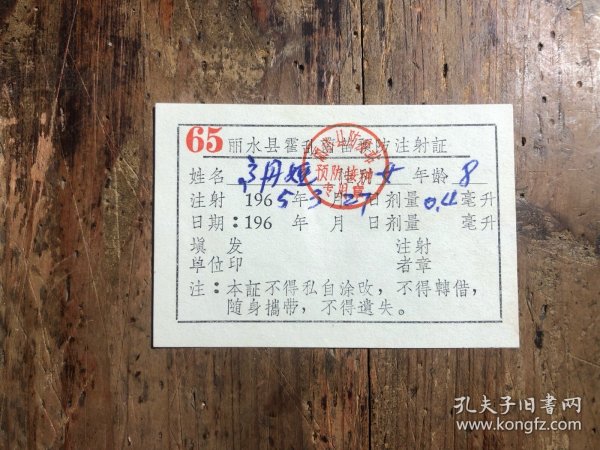 65 丽水县霍乱菌苗预防注射証
姓名 丹 性别 女 年龄 8
注射 1965年3月27日剂量0.4毫升
日期：196 年 月 日剂量 毫升
填发 注射
单位印 者章
注：本証不得私自涂改，不得轉借，
随身攜带，不得遺失。
预防接种
专用章
孔夫子旧书网
www.kongfz.com